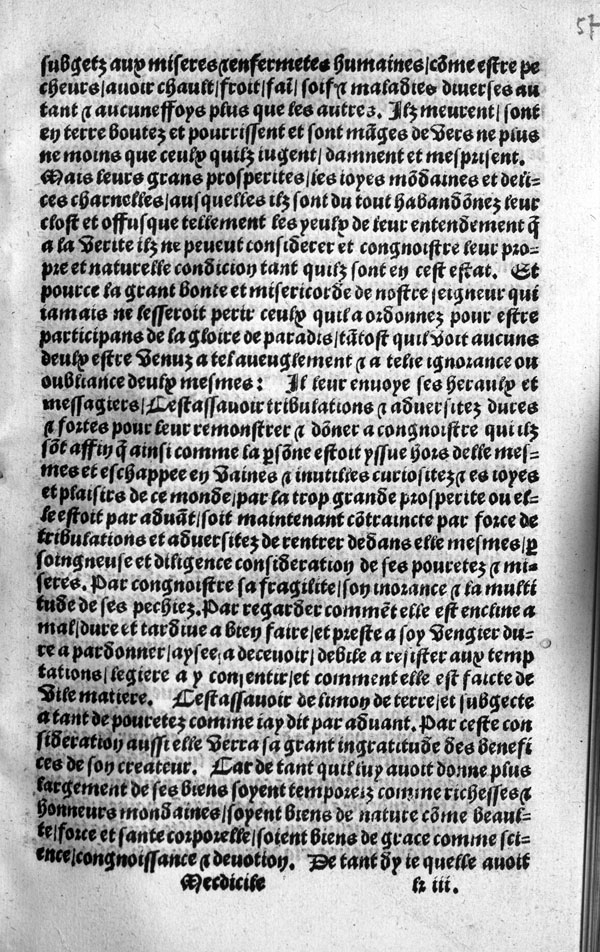 57
subgetz aux miseres ⁊ enfermetes humaines/cõme estre pe
cheurs/auoir chault/froit/faĩ/soif ⁊ maladies diuerses au
tant ⁊ aucuneffoys plus que les autres. Ilz meurent/sont
en terre boutez et pourrissent et sont mãges de vers ne plus
ne moins que ceulx quilz iugent/damnent et mesprisent.
Mais leurs grans prosperites/les ioyes mõdaines et deli-
ces charnelles/ausquelles ilz sont du tout habandõnez leur
clost et offusque tellement les yeulx de leur entendement q̃
a la verite ilz ne peuent considerer et congnoistre leur pro-
pre et naturelle condicion tant quilz sont en cest estat. Et
pource la grant bonte et misericorde de nostre seigneur qui
iamais ne lesseroit perir ceulx quil a ordonnez pour estre
participans de la gloire de paradis/tãtost quil voit aucuns
deulx estre venuz a tel aueuglement ⁊ a telle ignorance ou
oubliance deulx mesmes: Il leur enuoye ses heraulx et
messagiers/Cestassauoir tribulations ⁊ aduersitez dures
⁊ fortes pour leur remonstrer ⁊ dõner a congnoistre qui ilz
sõt affin q̃ ainsi comme la ꝑsõne estoit yssue hors delle mes-
mes et eschappee en vaines ⁊ inutilles curiositez ⁊ es ioyes
et plaisirs de ce monde/par la trop grande prosperite ou el-
le estoit par aduãt/soit maintenant cõtraincte par force de
tribulations et aduersitez de rentrer dedans elle mesmes/ꝑ
soingneuse et diligence consideration de ses pouretez ⁊ mi-
seres. Par congnoistre sa fragilite/son inorance ⁊ la multi
tude de ses pechiez. Par regarder commẽt elle est encline a
mal/dure et tardiue a bien faire/et preste a soy vengier du-
re a pardonner/aysee a deceuoir/debile a resister aux temp
tations/legiere a y consentir/et comment elle est faicte de
vile matiere. Cestassauoir de limon de terre/et subgecte
a tant de pouretez comme iay dit par aduant. Par ceste con
sideration aussi elle verra sa grant ingratitude des benefi
ces de son createur. Car de tant quil luy auoit donne plus
largement de ses biens soyent temporelz comme richesses ⁊
honneurs mondaines/soyent biens de nature cõme beaul-
te/force et sante corporelle/soient biens de grace comme sci-
ence/congnoissance ⁊ deuotion. De tant dy ie quelle auoit
Merdicile k iii.